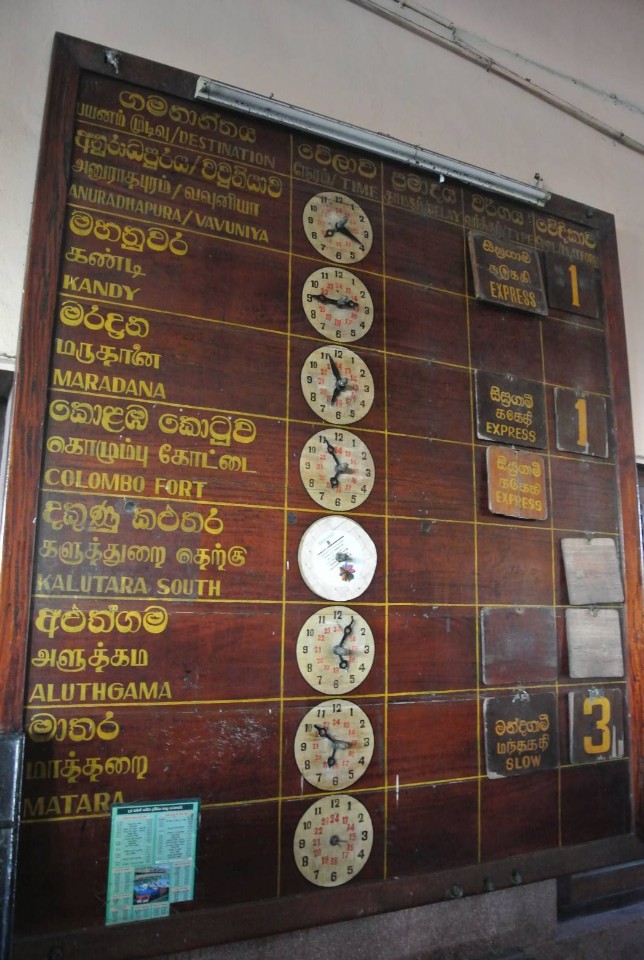 ගමනාන්තය
பயணம் முடிவு/DESTINATION
වේලාව
நேரம்/TIME
ප්‍රමාදය
தாமதம்/DELAY
වර්ගය
வர்க்கம்/TYPE
වේදිකාව
අනුරාධපුරය/වව්නියාව
அனுராதபுரம்/வவுனியா
ANURADHAPURA/VAVUNIYA
සීඝ්‍රගාමී
கடுகதி
EXPRESS
1
මහනුවර
கண்டி
KANDY
මරදාන
மருதானை
MARADANA
සීඝ්‍රගාමී
கடுகதி
EXPRESS
1
කොළඹ කොටුව
கொழும்பு கோட்டை
COLOMBO FORT
සීඝ්‍රගාමී
கடுகதி
EXPRESS
දකුණු කළුතර
களுத்துறை தெற்கு
KALUTARA SOUTH
අළුත්ගම
அளுத்கம
ALUTHGAMA
මාතර
மாத்தறை
MATARA
මන්දගාමී
மந்தகதி
SLOW
3